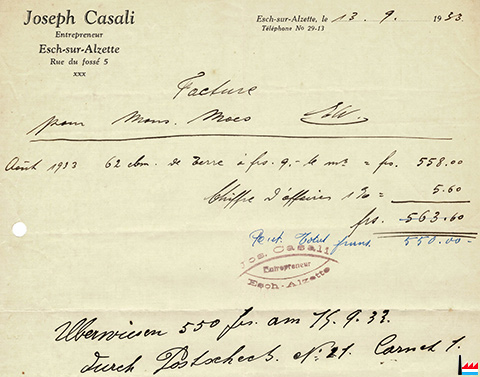 Joseph Casali
Entrepreneur
Esch-sur-Alzette
Rue du fossé 5
xxx
Esch-sur-Alzette, le 13. 9. 1933
Téléphone No 29-13
Facture
pour Mons. Moes
Août 1933 62 cbm. de Terre à frs. 9,- le m³ = frs. 558.00
Chiffre d'affaires 1% = 5.60
frs. 563.60
Total frans. 550.00-
Jos. Casali
Entrepreneur
Esch-Alzette
Überwiesen 550 frs. am 15.9.33.
durch Postscheck. No. 21. Carnet 1.